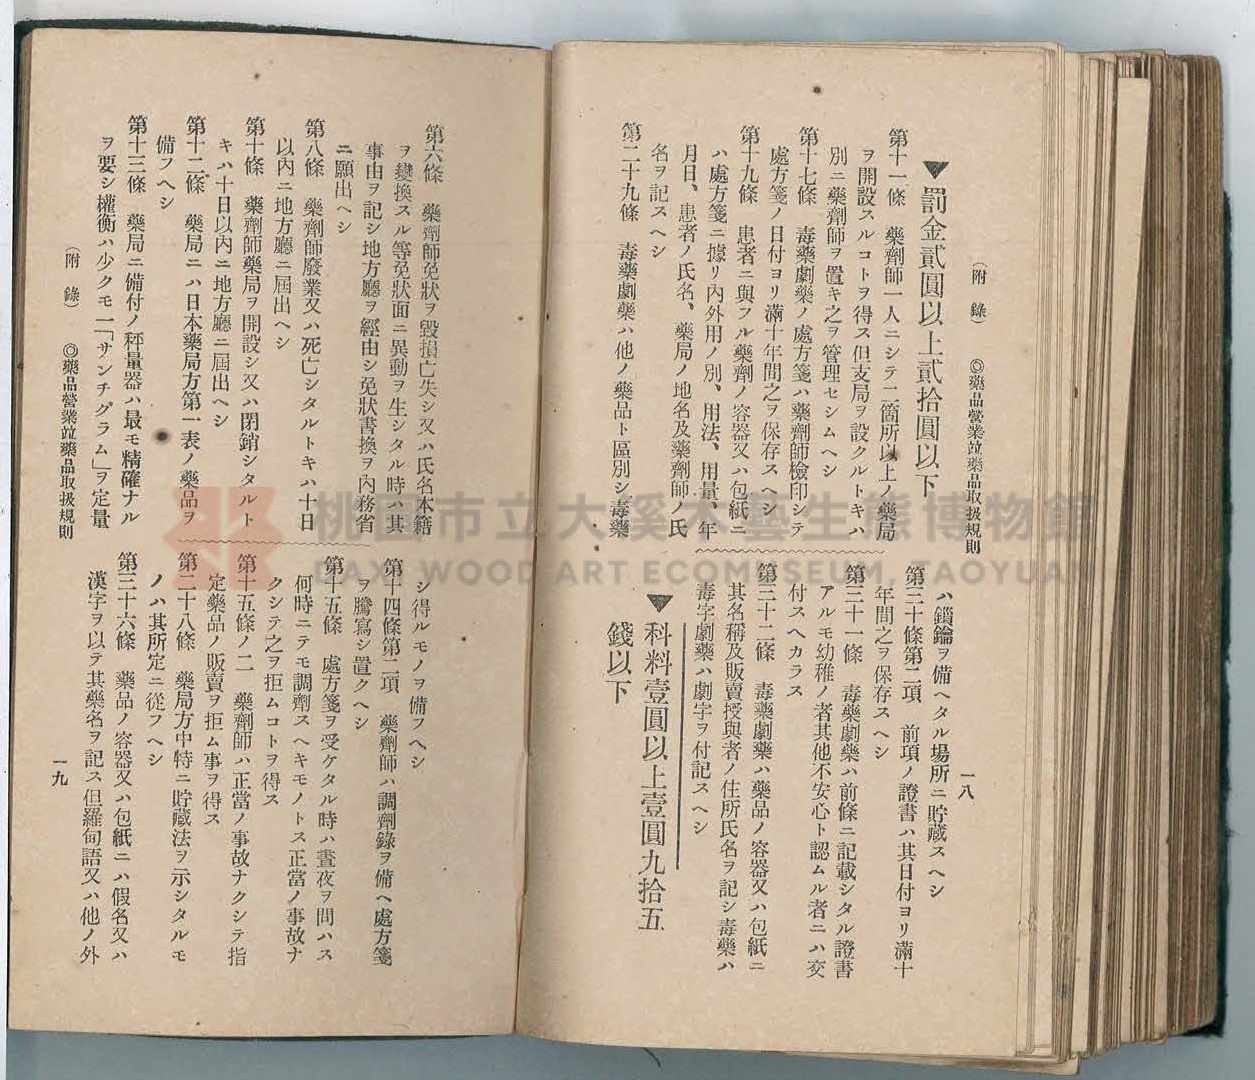 (附錄) ◎藥品營業竝藥品取扱規則
一八
▼罰金貳圓以上貳拾圓以下
第十一條 藥劑師一人ニシテ二箇所以上ノ藥局
ヲ開設スルコトヲ得ス但支局ヲ設クルトキハ
別ニ藥劑師ヲ置キ之ヲ管理セシムヘシ
第十七條 毒藥劇藥ノ處方箋ハ藥劑師檢印シテ
處方箋ノ日付ヨリ滿十年間之ヲ保存スヘシ
第十九條 患者ニ與フル藥劑ノ容器又ハ包紙ニ
ハ處方箋ニ據リ內外用ノ別、用法、用量、年
月日、患者ノ氏名、藥局ノ地名及藥劑師ノ氏
名ヲ記スヘシ
第二十九條 毒藥劇藥ハ他ノ藥品ト區別シ毒藥
ハ鎖鑰ヲ備ヘタル場所ニ貯藏スヘシ
第三十條第二項 前項ノ證書ハ其日付ヨリ滿十
年間之ヲ保存スヘシ
第三十一條 毒藥劇藥ハ前條ニ記載シタル證書
アルモ幼稚ノ者其他不安心ト認ムル者ニハ交
付スヘカラス
第三十二條 毒藥劇藥ハ藥品ノ容器又ハ包紙ニ
其名稱及販賣授與者ノ住所氏名ヲ記シ毒藥ハ
毒字劇藥ハ劇字ヲ付記スヘシ
▼科料壹圓以上壹圓九拾五
錢以下
第六條 藥劑師免狀ヲ毀損亡失シ又ハ氏名本籍
ヲ變換スル等免狀面ニ異動ヲ生シタル時ハ其
事由ヲ記シ地方廳ヲ經由シ免狀書換ヲ內務省
ニ願出ヘシ
第八條 藥劑師廢業又ハ死亡シタルトキハ十日
以內ニ地方廳ニ屆出ヘシ
第十條 藥劑師藥局ヲ開設シ又ハ閉銷シタルト
キハ十日以內ニ地方廳ニ屆出ヘシ
第十二條 藥局ニハ日本藥局方第一表ノ藥品ヲ
備フヘシ
第十三條 藥局ニ備付ノ秤量器ハ最モ精確ナル
ヲ要シ權衡ハ少クモ一「サンチグラム」ヲ定量
シ得ルモノヲ備フヘシ
第十四條第二項 藥劑師ハ調劑錄ヲ備ヘ處方箋
ヲ騰寫シ置クヘシ
第十五條 處方箋ヲ受ケタル時ハ晝夜ヲ問ハス
何時ニテモ調劑スヘキモノトス正當ノ事故ナ
クシテ之ヲ拒ムコトヲ得ス
第十五條ノ二 藥劑師ハ正當ノ事故ナクシテ指
定藥品ノ販賣ヲ拒ム事ヲ得ス
第二十八條 藥局方中特ニ貯藏法ヲ示シタルモ
ノハ其所定ニ從フヘシ
第三十六條 藥品ノ容器又ハ包紙ニハ假名又ハ
漢字ヲ以テ其藥名ヲ記ス但羅甸語又ハ他ノ外
(附錄) ◎藥品營業竝藥品取扱規則
一九
桃園市立大溪木藝生態博物館
DAXI WOOD ART ECOMUSEUM, TAOYUAN